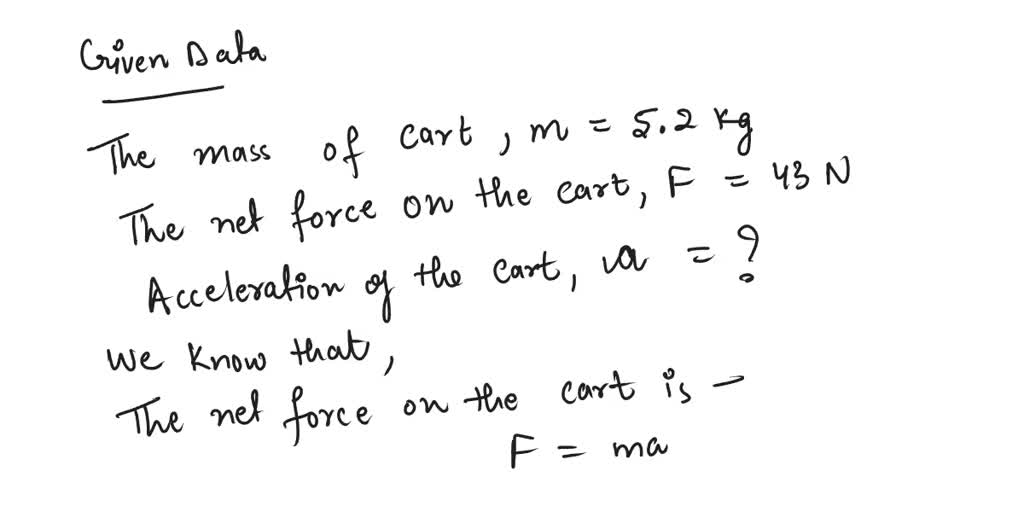 Given Data
The mass of cart, m = 5.2 kg
The net force on the cart, F = 43 N
Acceleration of the cart, a = ?
We know that,
The net force on the cart is -
F = ma